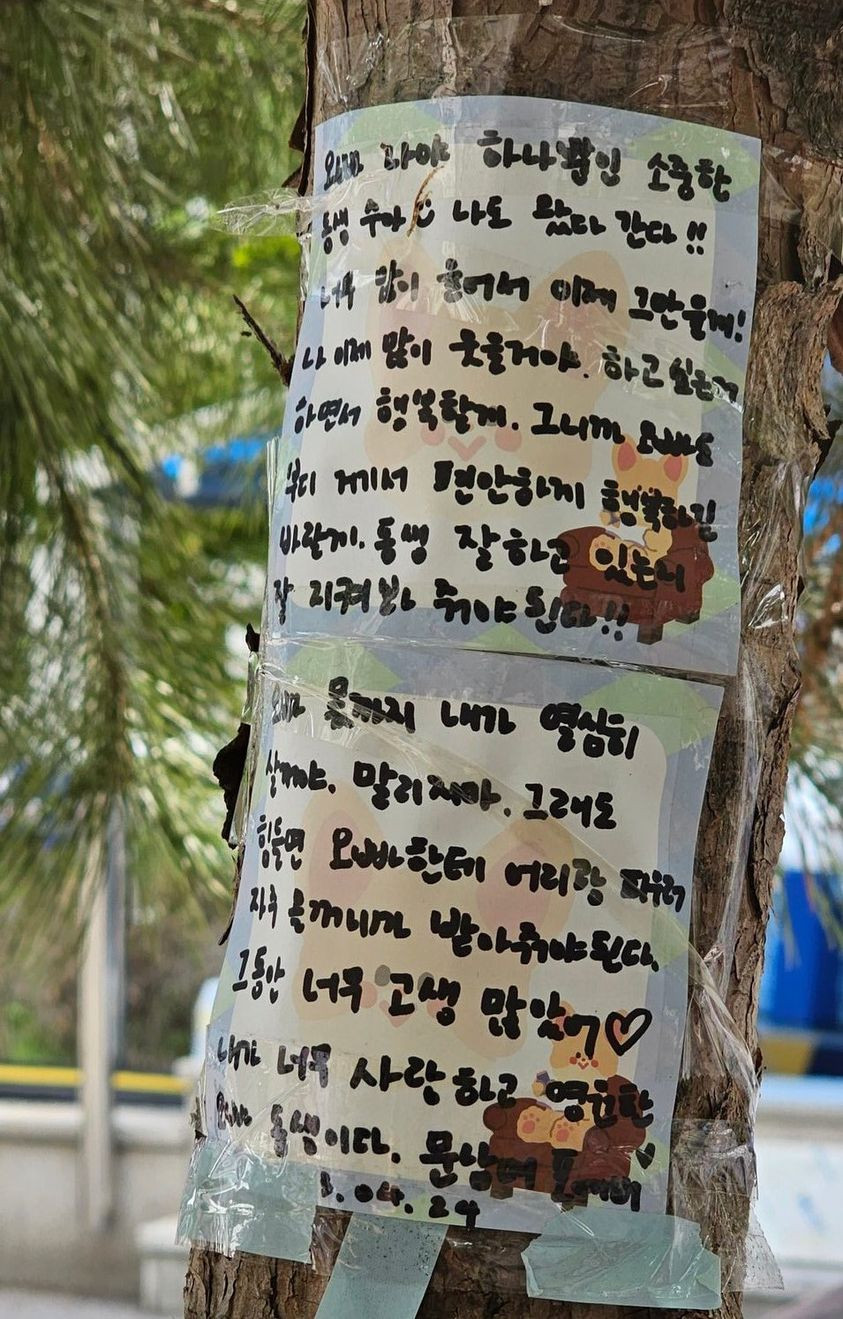 오빠 나야 하나뿐인 소중한
동생 수아 나도 왔다 간다!!
너무 많이 울어서 이제 그만 울게!
나 이제 많이 웃을거야. 하고 싶은거
하면서 행복할게. 그니까 오빠도
부디 거기서 편안하게 행복하길
바랄게. 동생 잘하고 있는지
잘 지켜 봐 줘야 된다!!
오빠 몫까지 내가 열심히
살게야. 말리지마. 그래도
힘들면 오빠한테 어리광 피우러
자주 올꺼니까 받아줘야된다.
그동안 너무 고생 많았어♡
내가 너무 사랑하고 영원한
오빠 동생이다.
.04.24